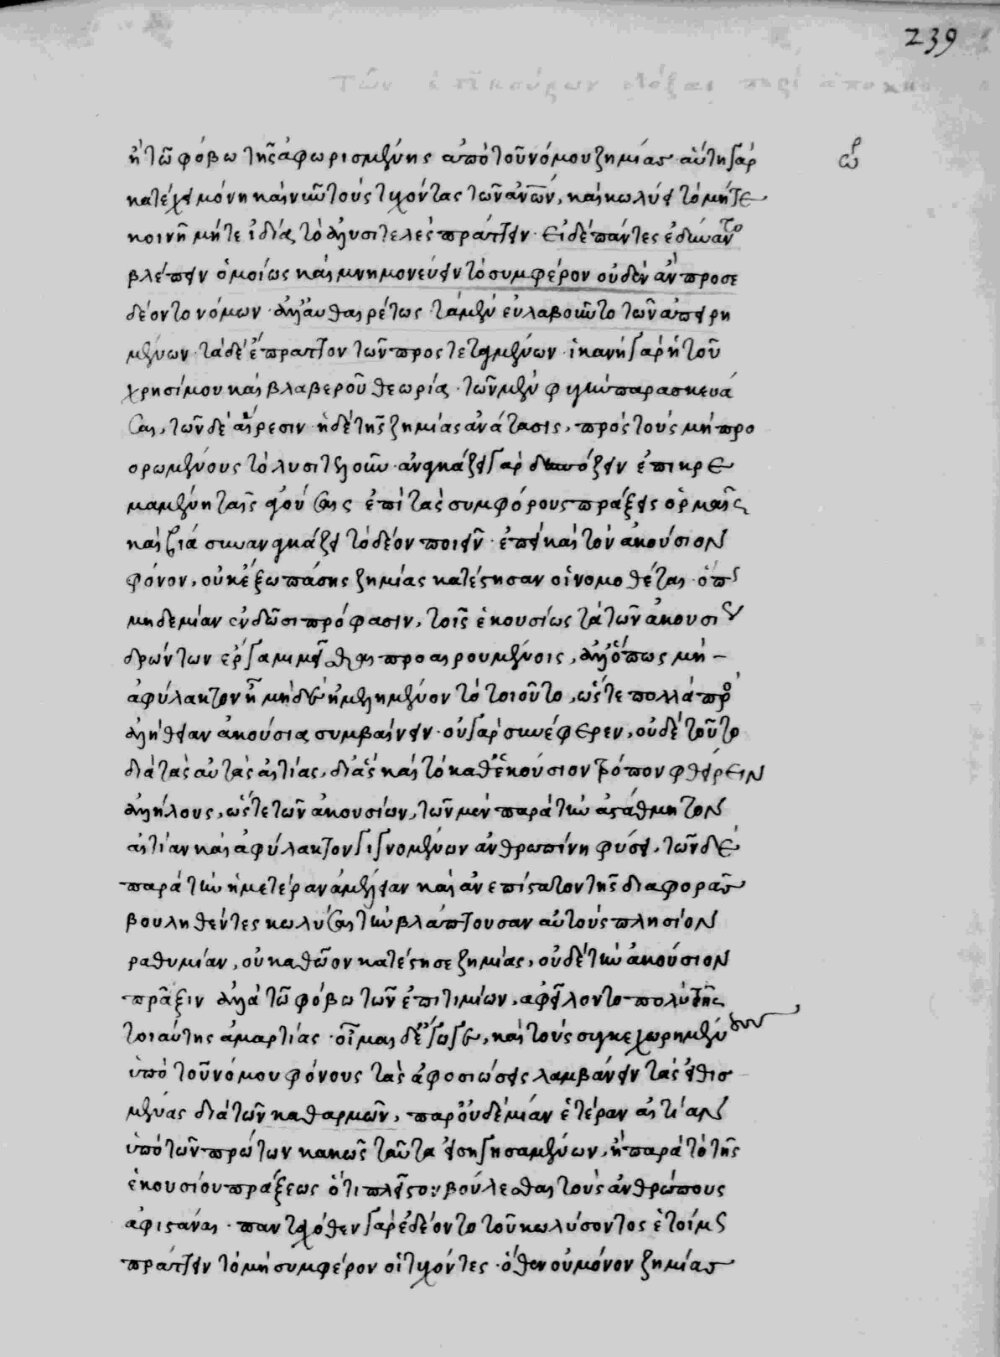 239
Τῶν ἐπικούρων δόξαι περὶ ἀποχῆς
ἢ τῶ φόβω τῆς ἀφωρισμένης ἀπὸ τοῦ νόμου ζημίας αὕτη γὰρ
ὡρ
κατέχει μόνη καὶ νῦν τοὺς τυχόντας τῶν ἀνων, καὶ κωλύει τὸ μήτε
κοινῆ μήτε ἰδία τὸ ἀλυσιτελὲς πράττειν · εἰ δὲ πάντες ἐδύναντο
βλέπειν ὁμοίως καὶ μνημονεύειν τὸ συμφέρον οὐδὲν ἂν προσε
δέοντο νόμων · ἀλλ' αὐθαιρέτως · τὰ μὲν εὐλαβοῦντο τῶν ἀπειρη
μένων · τὰ δὲ ἔπραττον τῶν προςτεταγμένων · ἱκανὴ γὰρ ἡ τοῦ
χρησίμου καὶ βλαβεροῦ θεωρία · τῶν μὲν φυγὴν παρασκευά
σαι, τῶν δὲ αἵρεσιν · ἡ δὲ τῆς ζημίας ἀνάτασις, πρὸς τοὺς μὴ προ
ορωμένους τὸ λυσιτελοῦν · ἀναγκάζει γὰρ ἐπικρε
μαμένη ταῖς ἀγούσαις ἐπὶ τὰς συμφόρους πράξεις ὁρμαῖς
καὶ βία συναναγκάζει τὸ δέον ποιεῖν · ἐπεὶ καὶ τὸν ἀκούσιον
φόνον, οὐκ ἔξω πάσης ζημίας κατέστησαν οἱ νομοθέται · ὅπως
μηδεμίαν ἐνδῶσι πρόφασιν, τοῖς ἑκουσίως τὰ τῶν ἀκουσίων
δρώντων ἔργα μιμεῖσθαι προαιρουμένοις, ἀλλ' ὅπως μὴ
ἀφύλακτον ἦ μηδὲ ἠμελημένον τὸ τοιοῦτο, ὥστε πολλὰ πρὸς
ἀλήθειαν ἀκούσια συμβαίνειν · οὐ γὰρ συνέφερεν, οὐδὲ τοῦτο
διὰ τὰς αὐτὰς αἰτίας, δι' ἃς καὶ τὸ καθ' ἑκούσιον τρόπον φθείρειν
ἀλλήλους, ὥστε τῶν ἀκουσίων, τῶν μὲν παρὰ τὴν ἀστάθμητον
αἰτίαν καὶ ἀφύλακτον γιγνομένων ἀνθρωπίνη φύσει, τῶν δὲ
παρὰ τὴν ἡμετέραν ἀμέλειαν καὶ ἀνεπίστατον τῆς διαφορᾶς
βουληθέντες κωλῦσαι τὴν βλάπτουσαν αὐτοὺς πλησίον
ραθυμίαν, οὐκ ἀθῶον κατέστησε ζημίας, οὐδὲ τὴν ἀκούσιον
πρᾶξιν ἀλλὰ τῶ φόβω τῶν ἐπιτιμίων, ἀφείλοντο πολὺ τῆς
τοιαύτης ἁμαρτίας · οἶμαι δ' ἔγωγε, καὶ τοὺς συγκεχωρημένους
ὑπὸ τοῦ νόμου φόνους τὰς ἀφοσιώσεις λαμβάνειν τὰς εἰθισ
μένας διὰ τῶν καθαρμῶν, παρ' οὐδεμίαν ἑτέραν αἰτίαν
ὑπὸ τῶν πρώτων κακῶς ταῦτα εἰσηγησαμένων, ἢ παρὰ τὸ τῆς
ἑκουσίου πράξεως ὅτι πλεῖστον βούλεσθαι τοὺς ἀνθρώπους
ἀφιστάναι · πανταχόθεν γὰρ ἐδέοντο τοῦ κωλύσοντος ἑτοίμως
πράττειν τὸ μὴ συμφέρον οἱ τυχόντες · ὅθεν οὐ μόνον ζημίας